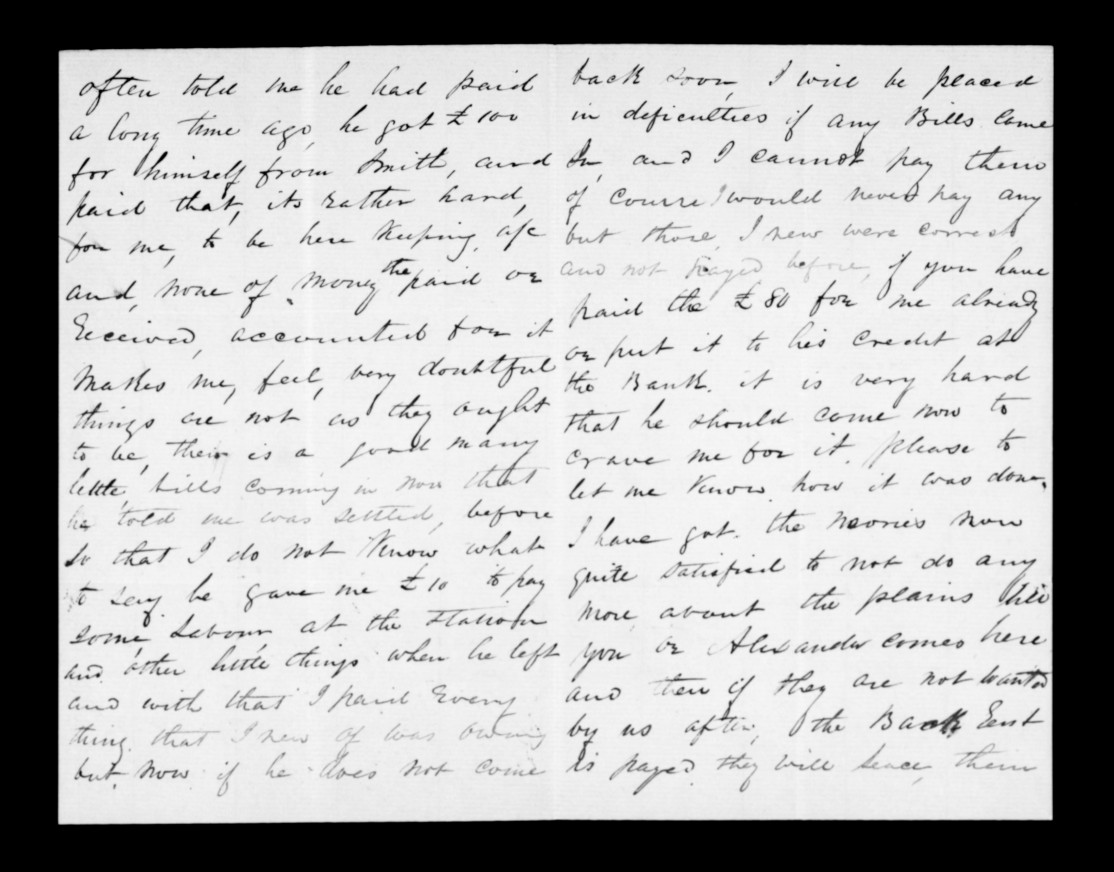 often told me he had paid
a long time ago, he got £100
for himself from Smith, and
paid that, its rather hard,
for me, to be here Keeping, a/c
and, none of the money paid or
Received, accounted for it
makes me, feel, very doubtful
things are not as they ought
to be, their is a good many
little, bills coming in now that
he told me was settled, before
So that I do not Know what
to say he gave me £10 to pay
some Labour at the Station
and other little things when he left
and with that I paid Every
thing that I new of was owing
but now if he does not come
back soon, I will be placed
in deficulties if any Bills Come
In, and I cannot pay them
of course I would never pay any
but those, I new were correct
and not payed before, if you have
paid the £80 for me already
or put it to his credit at
the Bank. it is very hard
that he should come now to
crave me for it. please to
let me Know how it was done.
I have got. the Meories now
quite satisfied to not do any
more about the plains till
you or Alexander comes here
and then if they are not wanted
by us after, the Back Rent
is payed they will Leace, them